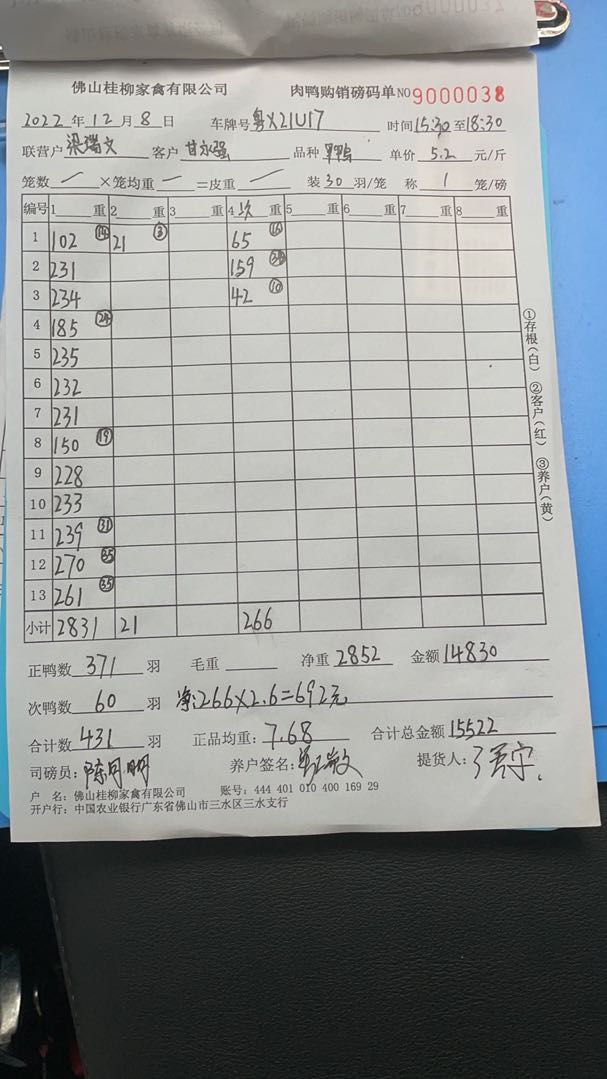 佛山桂柳家禽有限公司 肉鸭购销磅码单 NO 9000038
2022年12月8日 车牌号粤X21U17 时间15:30至18:30
联营户梁瑞文 客户甘永强 品种 单价5.2元/斤
笼数 — ×笼均重 — =皮重 — 装30羽/笼 称1笼/磅
编号 1 重 2 重 3 重 4 次 重 5 重 6 重 7 重 8 重
1 102 ⑭ 21 ③ 65 ⑯
2 231 159
3 234 42 ⑩
4 185 ㉔
5 235
6 232
7 231
8 150 ⑲
9 228
10 233
11 239 ㉛
12 270 ㉟
13 261 ㉟
小计 2831 21 266
正鸭数371羽 毛重 净重2852 金额14830
次鸭数60羽 净:266×2.6=692元
合计数431羽 正品均重:7.68 合计总金额15522
司磅员: 养户签名: 提货人:
户 名:佛山桂柳家禽有限公司 账号:444 401 010 400 169 29
开户行:中国农业银行广东省佛山市三水区三水支行
①存根(白) ②客户(红) ③养户(黄)